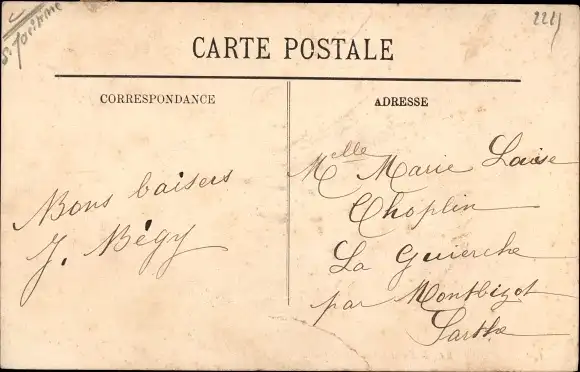 2221
CARTE POSTALE
CORRESPONDANCE
Bons baisers
J. Bégy
ADRESSE
Melle Marie Louise
Choplin
La Guierche
par Montbizot
Sarthe